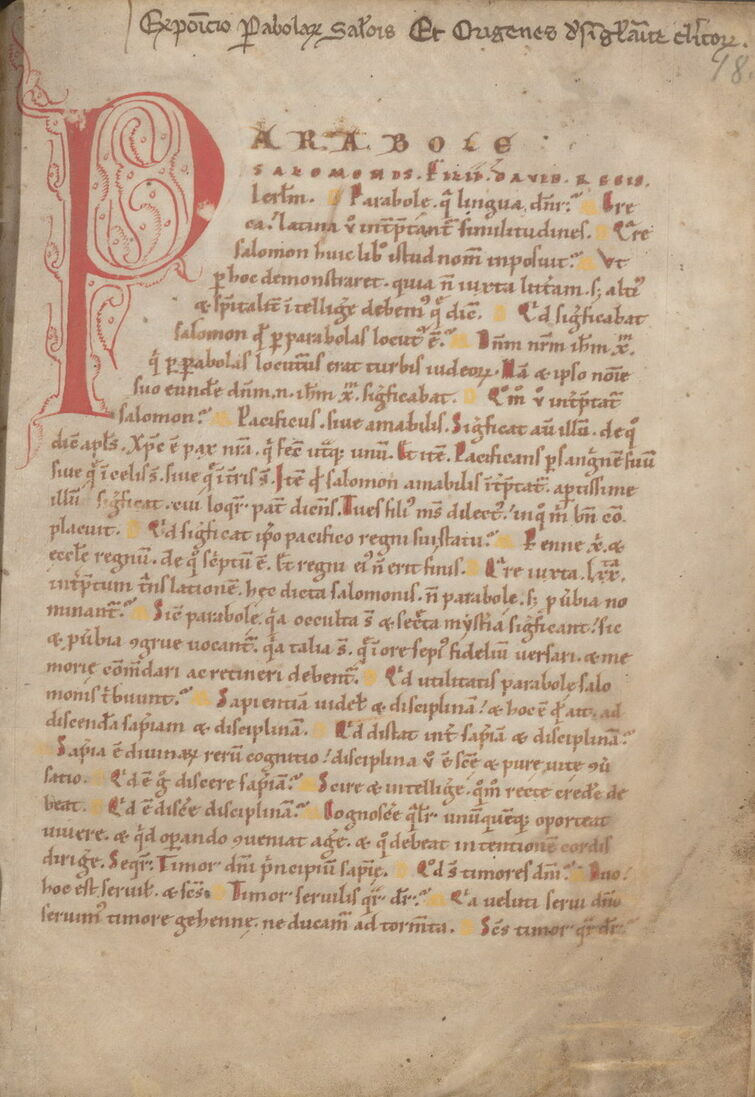 Expoicio Pabolaꝝ Saloīs Et Origenes
18
PARABOLE
SALOMONIS. FILII. DAVID. REGIS.
Ierlm̄. Parabole. q̄ lingua dn̄r. Gre
ca. latina v̊ int̄p̄tant̄ similitudines. Q̄re
salomon huic lib̊ istud nom̄ inposuit. Vt
p hoc demonstraret. quia n̄ iuxta litt̄am. s; alti᷒
& sp̄italit̄ ītellige̅ debem᷒ q̄ dic̄. Q͛d sig̅ficabat
salomon q͛ p parabolas locut᷒ ē. Dn̄m nr̄m ih̄m xp̄m.
q͛ p parabolas locuturus erat turbis iudeoꝝ. Nā & ipso noīe
suo eunde̅ dn̄m.n. ih̄m xp̄m. sig̅ficabat. Q̊m̊ v̊ int̄p̄tat̄
salomon. Pacificus. siue amabilis. Sig̅ficat aū illū. de q̊
dic̄ apl̄s. Xp̄c ē pax nr̄a. q͛ fec̄ utq̄; unū. Et itē. Pacificans p sangnē suū
siue q̄ ī celis s̄. siue q̄ ī t̄ris s̄. Itē q͛ salomon amabilis īt̄p̄tat̄. aptissime
illū sig̅ficat. cui loqr̄. pat̄ dicens. Tu es fili᷒ m̄s dilect᷒. in q̊ m̄ bn̄ cō
placuit. Q͛d sig̅ficat ipo pacifico regni sui statu. Penne x̄. &
eccle̅ regnū. de q̊ sc̄ptū ē. Et regni ei᷒ n̄ erit finis. Q̄re iuxta. lxx.
int̄p̄tum t̄nslationē. hec dicta salomonis. n̄ parabole. s; pūbia no
minant̄. Sic̄ parabole. q̄a occulta s̄ & sec̄ta mystīa sig̅ficant. sic
& pūbia ꝯgrue vocant̄. q̄a talia s̄. q̄ ī ore sepi᷒ fideliū versari. & me
morię cōm̄dari ac retineri debent̄. Q͛d utilitatis parabolę salo
monis t͛buunt. Sapientiā uidel̄ & disciplinā. & hoc ē q͛ ait. ad
discenda̅ sapīam & disciplinā. Q͛d distat int̄ sapīā & disciplinā.
Sapīa ē diuinaꝝ rerū cognitio. disciplina v̊ ē scē & pure uitę ꝯū
satio. Q͛d ē g̊ discere sapīā. Scire & intellige̅. q̊m̊ recte crede̅ de
beat. Q͛d ē disce̅ disciplinā. Cognosce̅ qlr̄. unūquēq; oporteat
uiuere. & q͛d opando ꝯueniat age̅. & q̊ debeat intentionē cordis
dirige̅. Seqr̄. Timor dn̄i p̄ncipiū sapię. Q̊d s̄ timores dn̄i. Duo.
hoc est seruil̄. & scs̄. Timor seruilis qr̄ dr̄. Q̄a veluti serui dn̄o
seruim᷒ timore gehennę. ne ducam̄ ad torm̄ta. Scs̄ timor qr̄ dr̄.